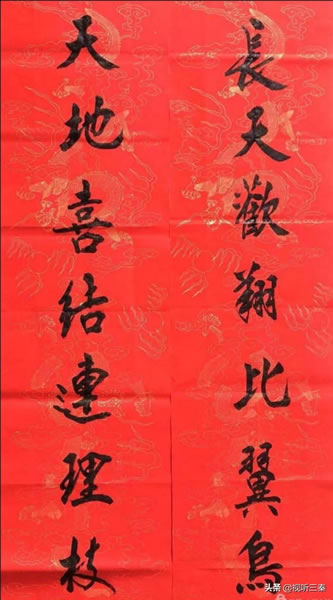 長天歡翔比翼鳥
天地喜結連理枝
头条 @视听三秦